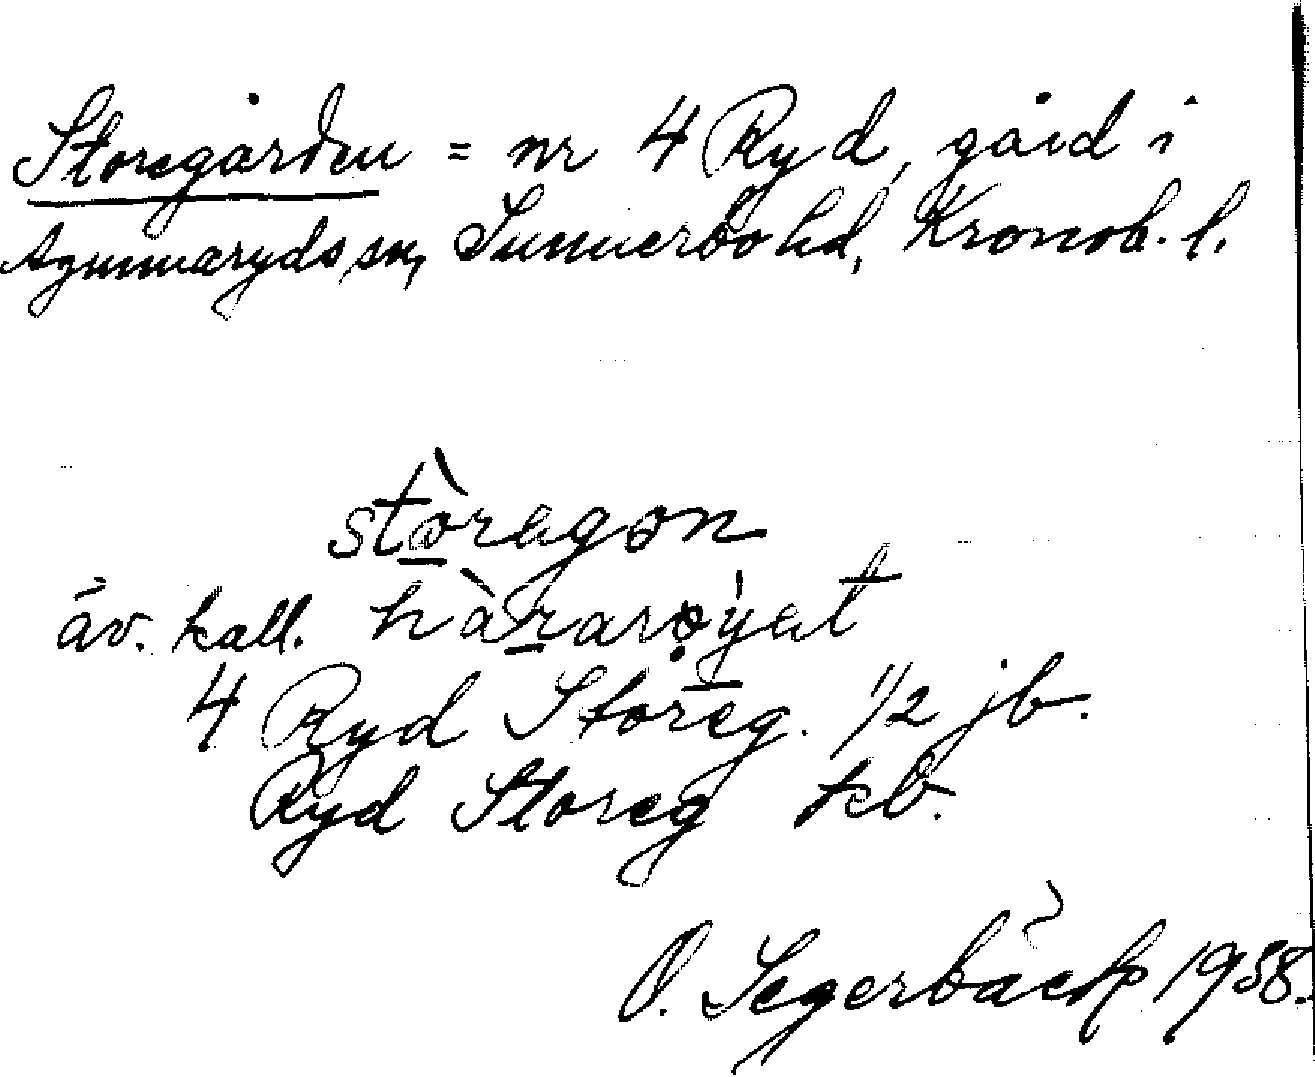 Storegården = nr 4 Ryd, gård i
Agunnaryds sn, Sunnerbo hd, Kronob. l.
stòragɷn
äv. kall. hàrarøyat
4 Ryd Storeg. 1/2 jb.
Ryd Storeg kb.
O. Segerbäck 1958.